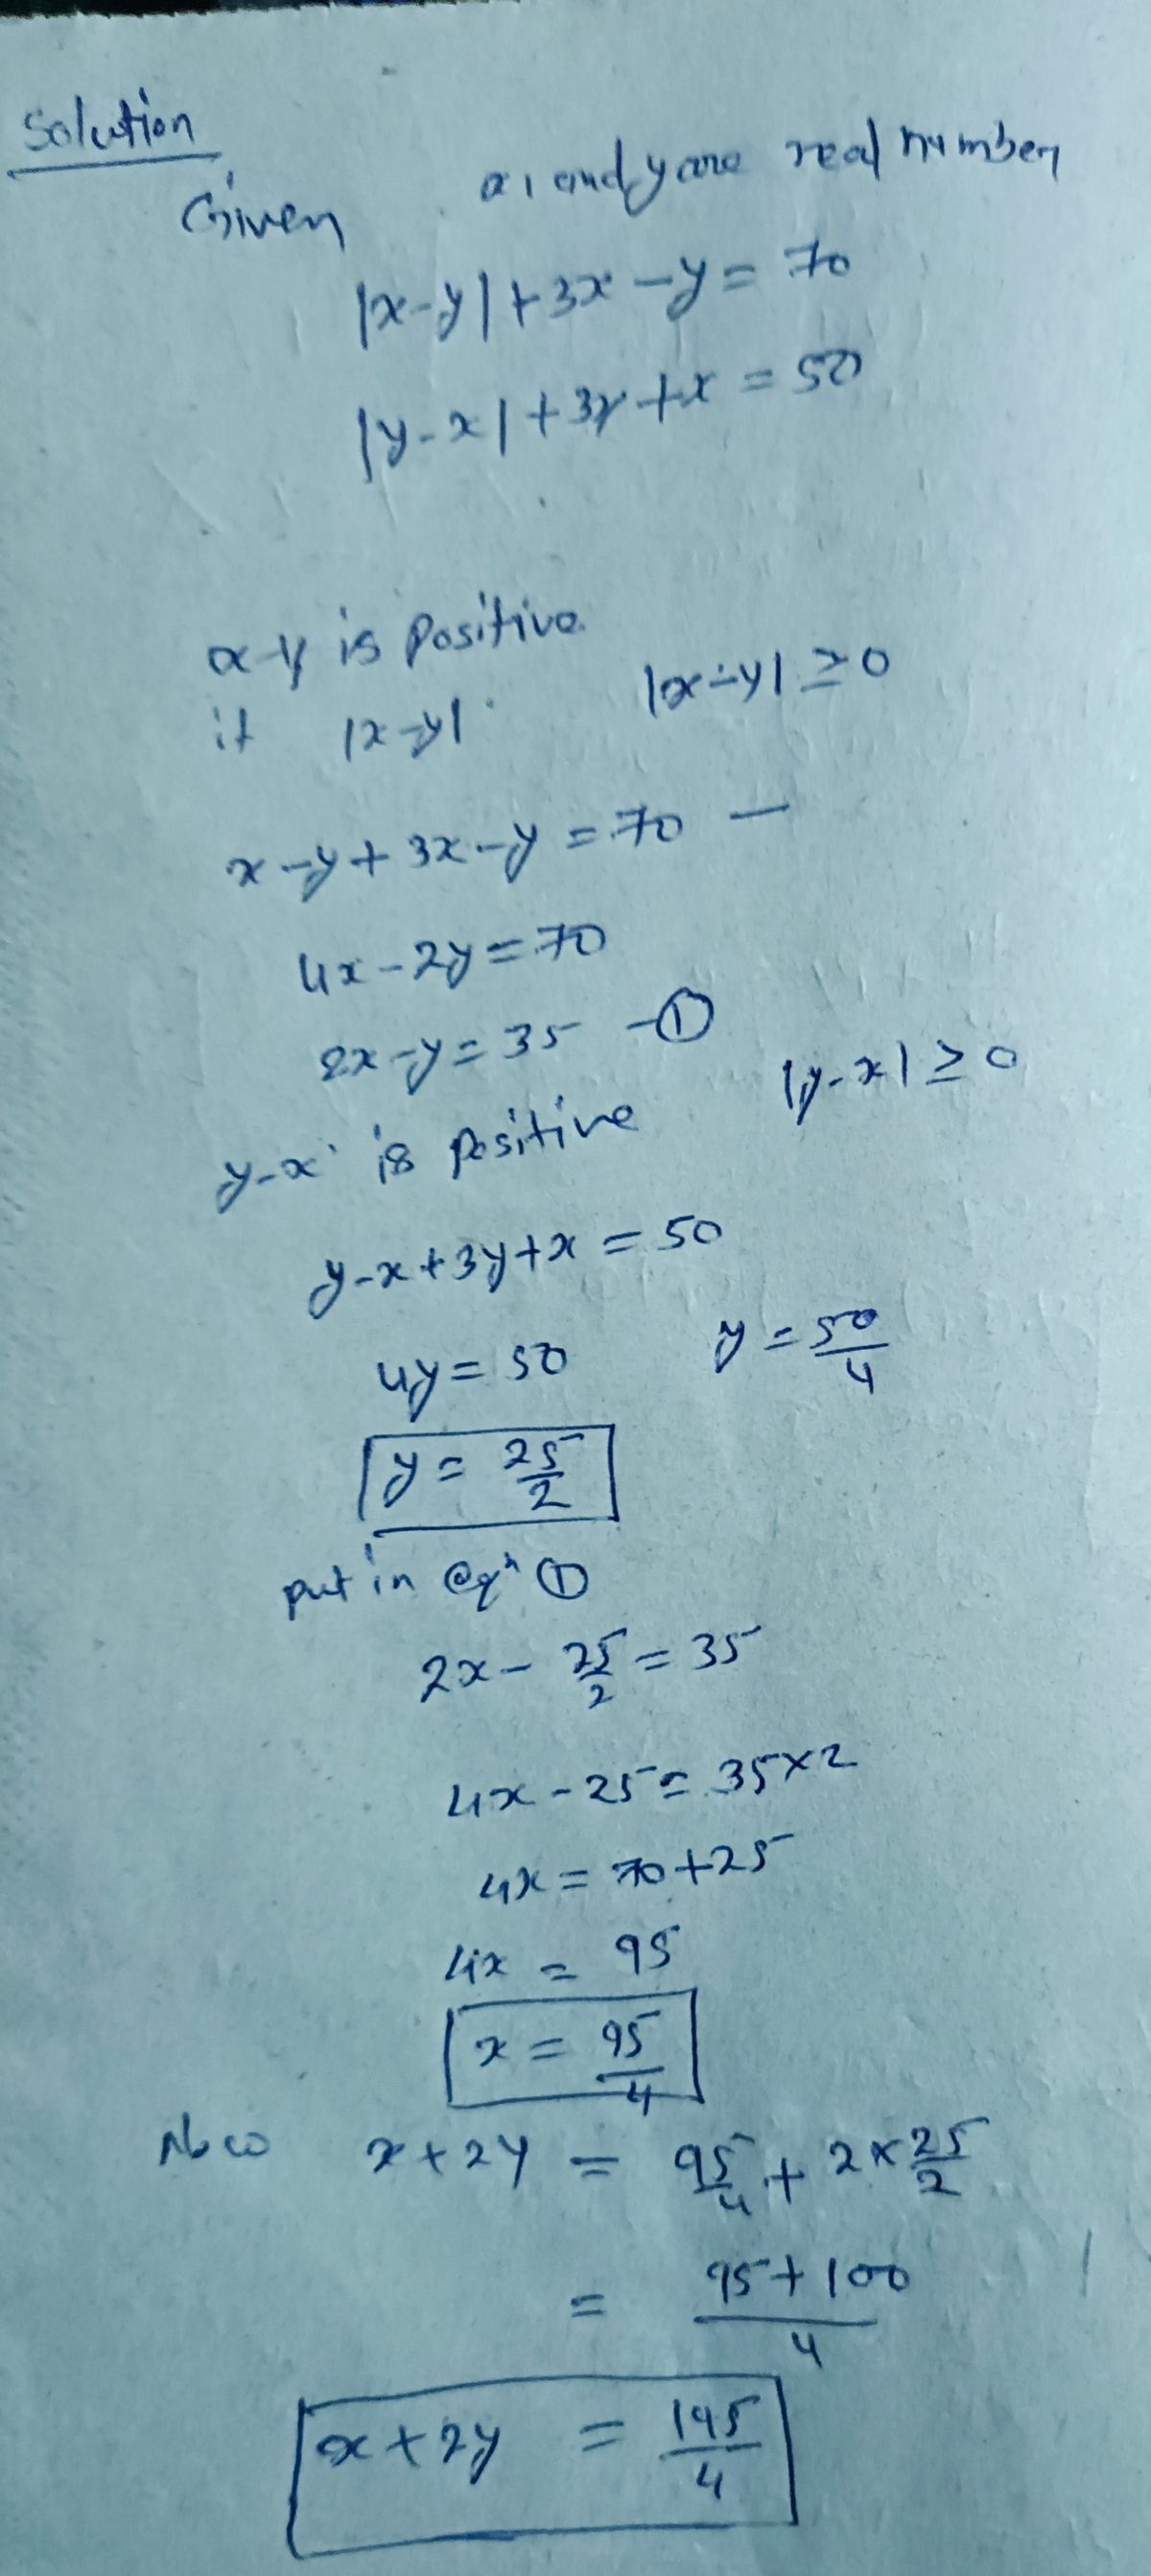 Solution
Given x, and y are real number
|x-y|+3x-y=70
|y-x|+3y+x=50
x-y is positive
if |x-y| |x-y|≥0
x-y+3x-y=70 —
4x-2y=70
2x-y=35 -①
y-x is positive |y-x|≥0
y-x+3y+x=50
4y=50 y=50/4
y=25/2
put in eqn ①
2x-25/2=35
4x-25=35×2
4x=70+25
4x=95
x=95/4
Now x+2y=95/4+2×25/2
=(95+100)/4
x+2y=195/4